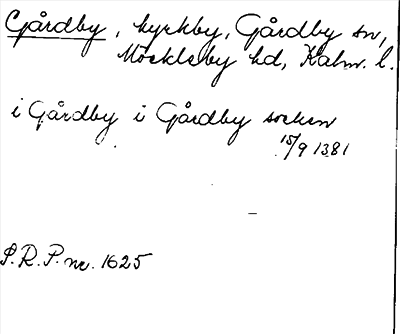 Gårdby, kyrkby, Gårdby sn,
Möckleby hd, Kalm. l.
i Gårdby i Gårdby socken
15/9 1381
S.R.P. nr. 1625